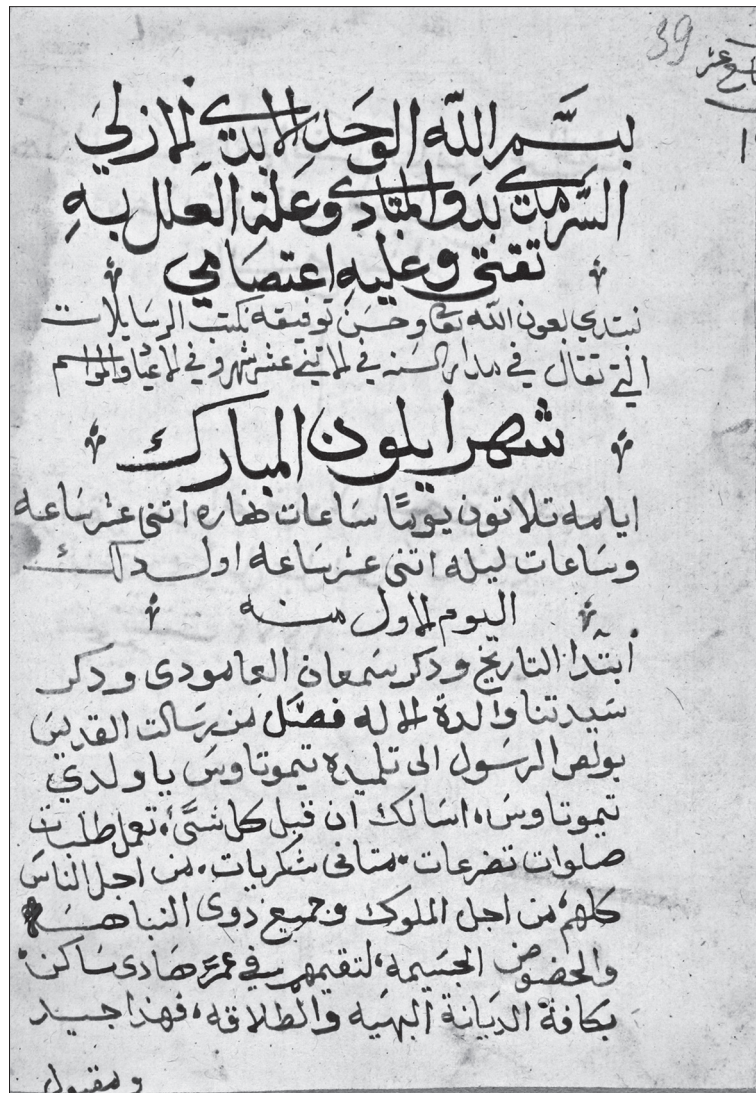 39
بسم الله الوحد الابدي الازلي
السرمدي بدو المبادي وعلة العلل به
تقتي وعليه اعتصامي
نبتدي بعون الله تعالى وحسن توفيقه نكتب الرسايلات
التي تقال في مدار السنه في الاتني عشر شهر وفي الاعياد والمواسم
شهر ايلون المبارك
ايامه تلاتون يومًا ساعات نهاره اتنى عشر ساعه
وساعات ليله اتنى عشر ساعه اول دلك
اليوم الاول منه
أبتدا التاريخ ودكر سمعان العامودى ودكر
سيدتنا والدة الاله فصل من رسالت القديس
بولص الرسول الى تلميده تيموتاوس يا ولدي
تيموتاوس، اسالك ان قبل كل شيء، تعمل طلبات
صلوات تضرعات متانى شكريات، من اجل الناس
كلهم، من اجل الملوك وجميع ذوى النباهه
والحضوض الجسيمه، لتقيمهم في عمر هادى ساكن
بكافة الديانة البهيه والطلاقه، فهذا جيد
ومقبول